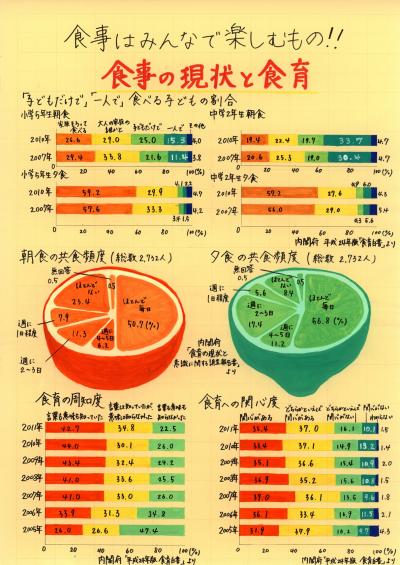 食事はみんなで楽しむもの!!
食事の現状と食育
「子どもだけで」「一人で」食べる子どもの割合
小学5年生朝食
中学2年生朝食
家族そろって食べる 大人の家族の誰かと 子どもだけで 一人で その他
2010年 26.6 29.0 25.0 15.3 4.0
2007年 29.4 33.8 21.6 11.4 3.8
2010年 19.4 22.4 19.7 33.7 4.7
2007年 20.6 25.3 19.0 30.4 4.7
0 20 40 60 80 100(%)
0 20 40 60 80 100(%)
小学5年生夕食
中学2年生夕食
2010年 59.2 29.9
2007年 57.6 33.3 4.2
2010年 57.2 27.6 4.3
2007年 56.0 29.0 5.4
0 20 40 60 80 100(%)
0 20 40 60 80 100(%)
内閣府 平成24年版「食育白書」より
朝食の共食頻度(総数2,732人)
夕食の共食頻度(総数2,732人)
無回答 0.5
ほとんどない 23.4
週に1日程度 7.9
週に2〜3日 11.3
週に4〜5日 6.2
ほとんど毎日 50.7(%)
無回答 0.5
ほとんどない 8.4
週に1日程度 5.6
週に2〜3日 17.4
週に4〜5日 11.2
ほとんど毎日 56.8(%)
内閣府
「食育の現状と意識に関する調査報告書」より
食育の周知度
食育への関心度
言葉も意味も知っていた
2011年 42.7 34.8 22.5
2010年 44.0 30.1 26.0
2009年 43.4 32.4 24.2
2008年 41.0 33.6 25.5
2007年 41.0 33.0 26.0
2006年 33.9 31.3 34.8
2005年 26.0 26.6 47.4
0 20 40 60 80 100(%)
内閣府「平成24年版 食育白書」より
関心がある どちらかといえば関心がある どちらかといえば関心がない 関心がない わからない
2011年 37.0 16.1 10.1 1.5
2010年 37.1 14.9 13.2 1.4
2009年 35.1 36.6
2008年 36.9 35.2 15.6 10.8 1.5
2007年 36.1 13.5 9.6 1.8
2006年 36.1 33.4 2.1
2005年 31.9 37.9 16.2 4.3
0 20 40 60 80 100(%)
内閣府「平成24年版 食育白書」より